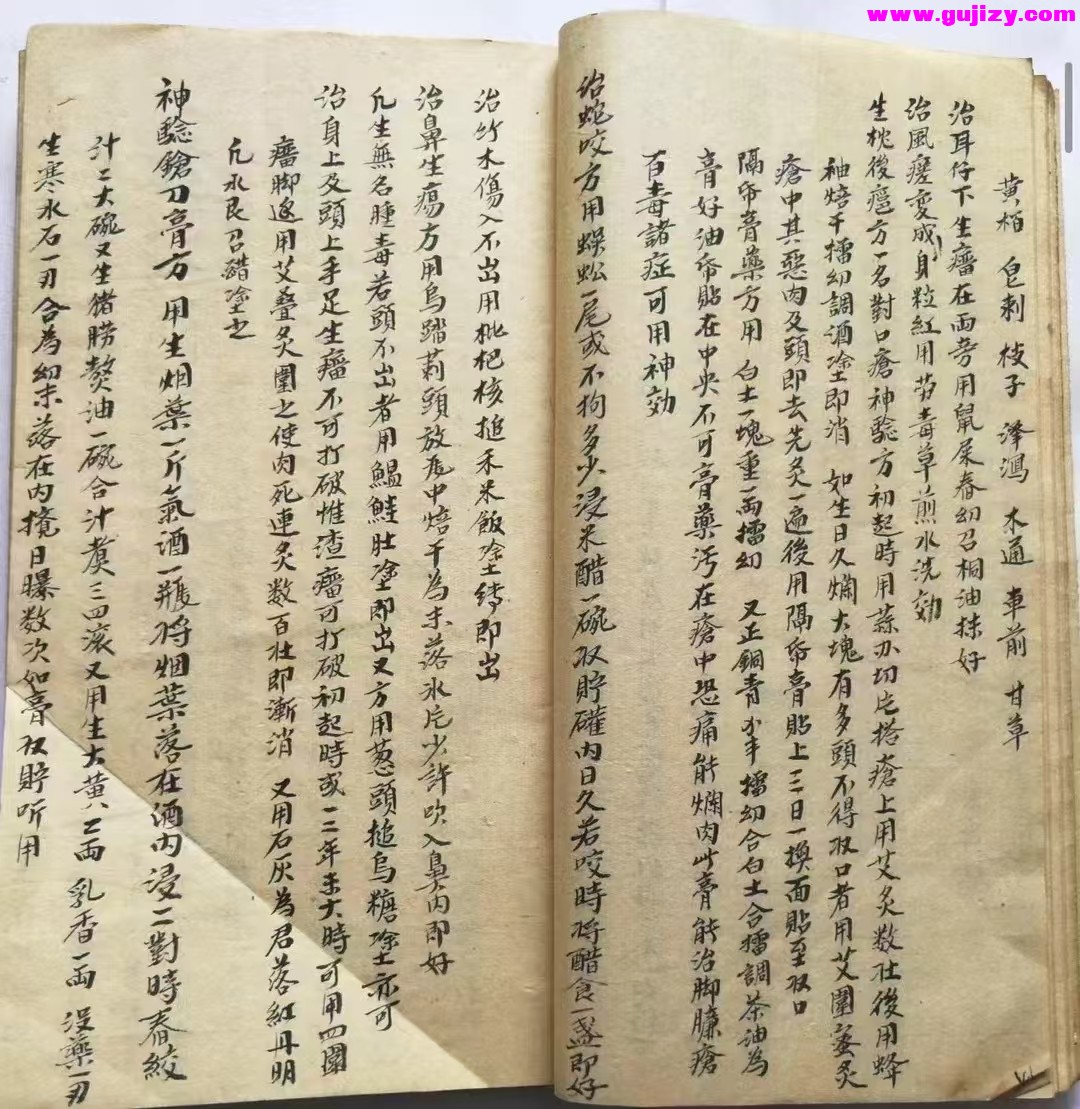 www.gujizy.com
黄柏 皂刺 枝子 泽瀉 木通 車前 甘草
治耳仔下生瘤在両旁用鼠屎舂幼召桐油抹好
治風㾾变成身粒紅用苦毒草煎水洗効
生枕後疤方一名對口瘡神騐方初起時用蒜办切片搭瘡上用艾灸数壮後用蜂
袖焙干擂幼調酒塗即消 如生日久爛大塊有多頭不得収口者用艾圍蜜灸
瘡中其惡肉及頭即去先灸一遍後用隔帋膏貼上三日一換面貼至収口
隔帋膏藥方用 白土一塊重一両擂幼 又正銅青 擂幼合白土合擂調茶油為
膏好油帋貼在中央不可膏藥污在瘡中恐痛能爛肉此膏能治脚臁瘡
百毒諸症可用神効
治蛇咬方用蜈蚣一尾或不拘多少浸米醋一碗収貯礶内日久若咬時将醋食一盏即好
治竹木傷入不出用枇杷核搥禾米飯塗縛即出
治鼻生瘍方用烏踏莿頭放瓦中焙干為末落氷片少許吹入鼻内即好
凢生無名腫毒若頭不出者用鰛鮭肚塗即出又方用葱頭搥烏糖塗亦可
治身上及頭上手足生瘤不可打破惟渣瘤可打破初起時或一二年未大時可用四圍
瘤脚邊用艾叠灸圍之使肉死連灸数百壮即漸消 又用石灰為君落紅丹明
凢水艮召醋塗之
神騐鎗刀膏方 用生烟葉一斤氣酒一瓶将烟葉落在酒内浸二對時舂絞
汁二大碗又生猪朥熬油一碗合汁煑三四滚又用生大黄八二両 乳香一両 没藥一刃
生寒水石一刃合為幼末落在内攪日曝数次如膏収貯听用